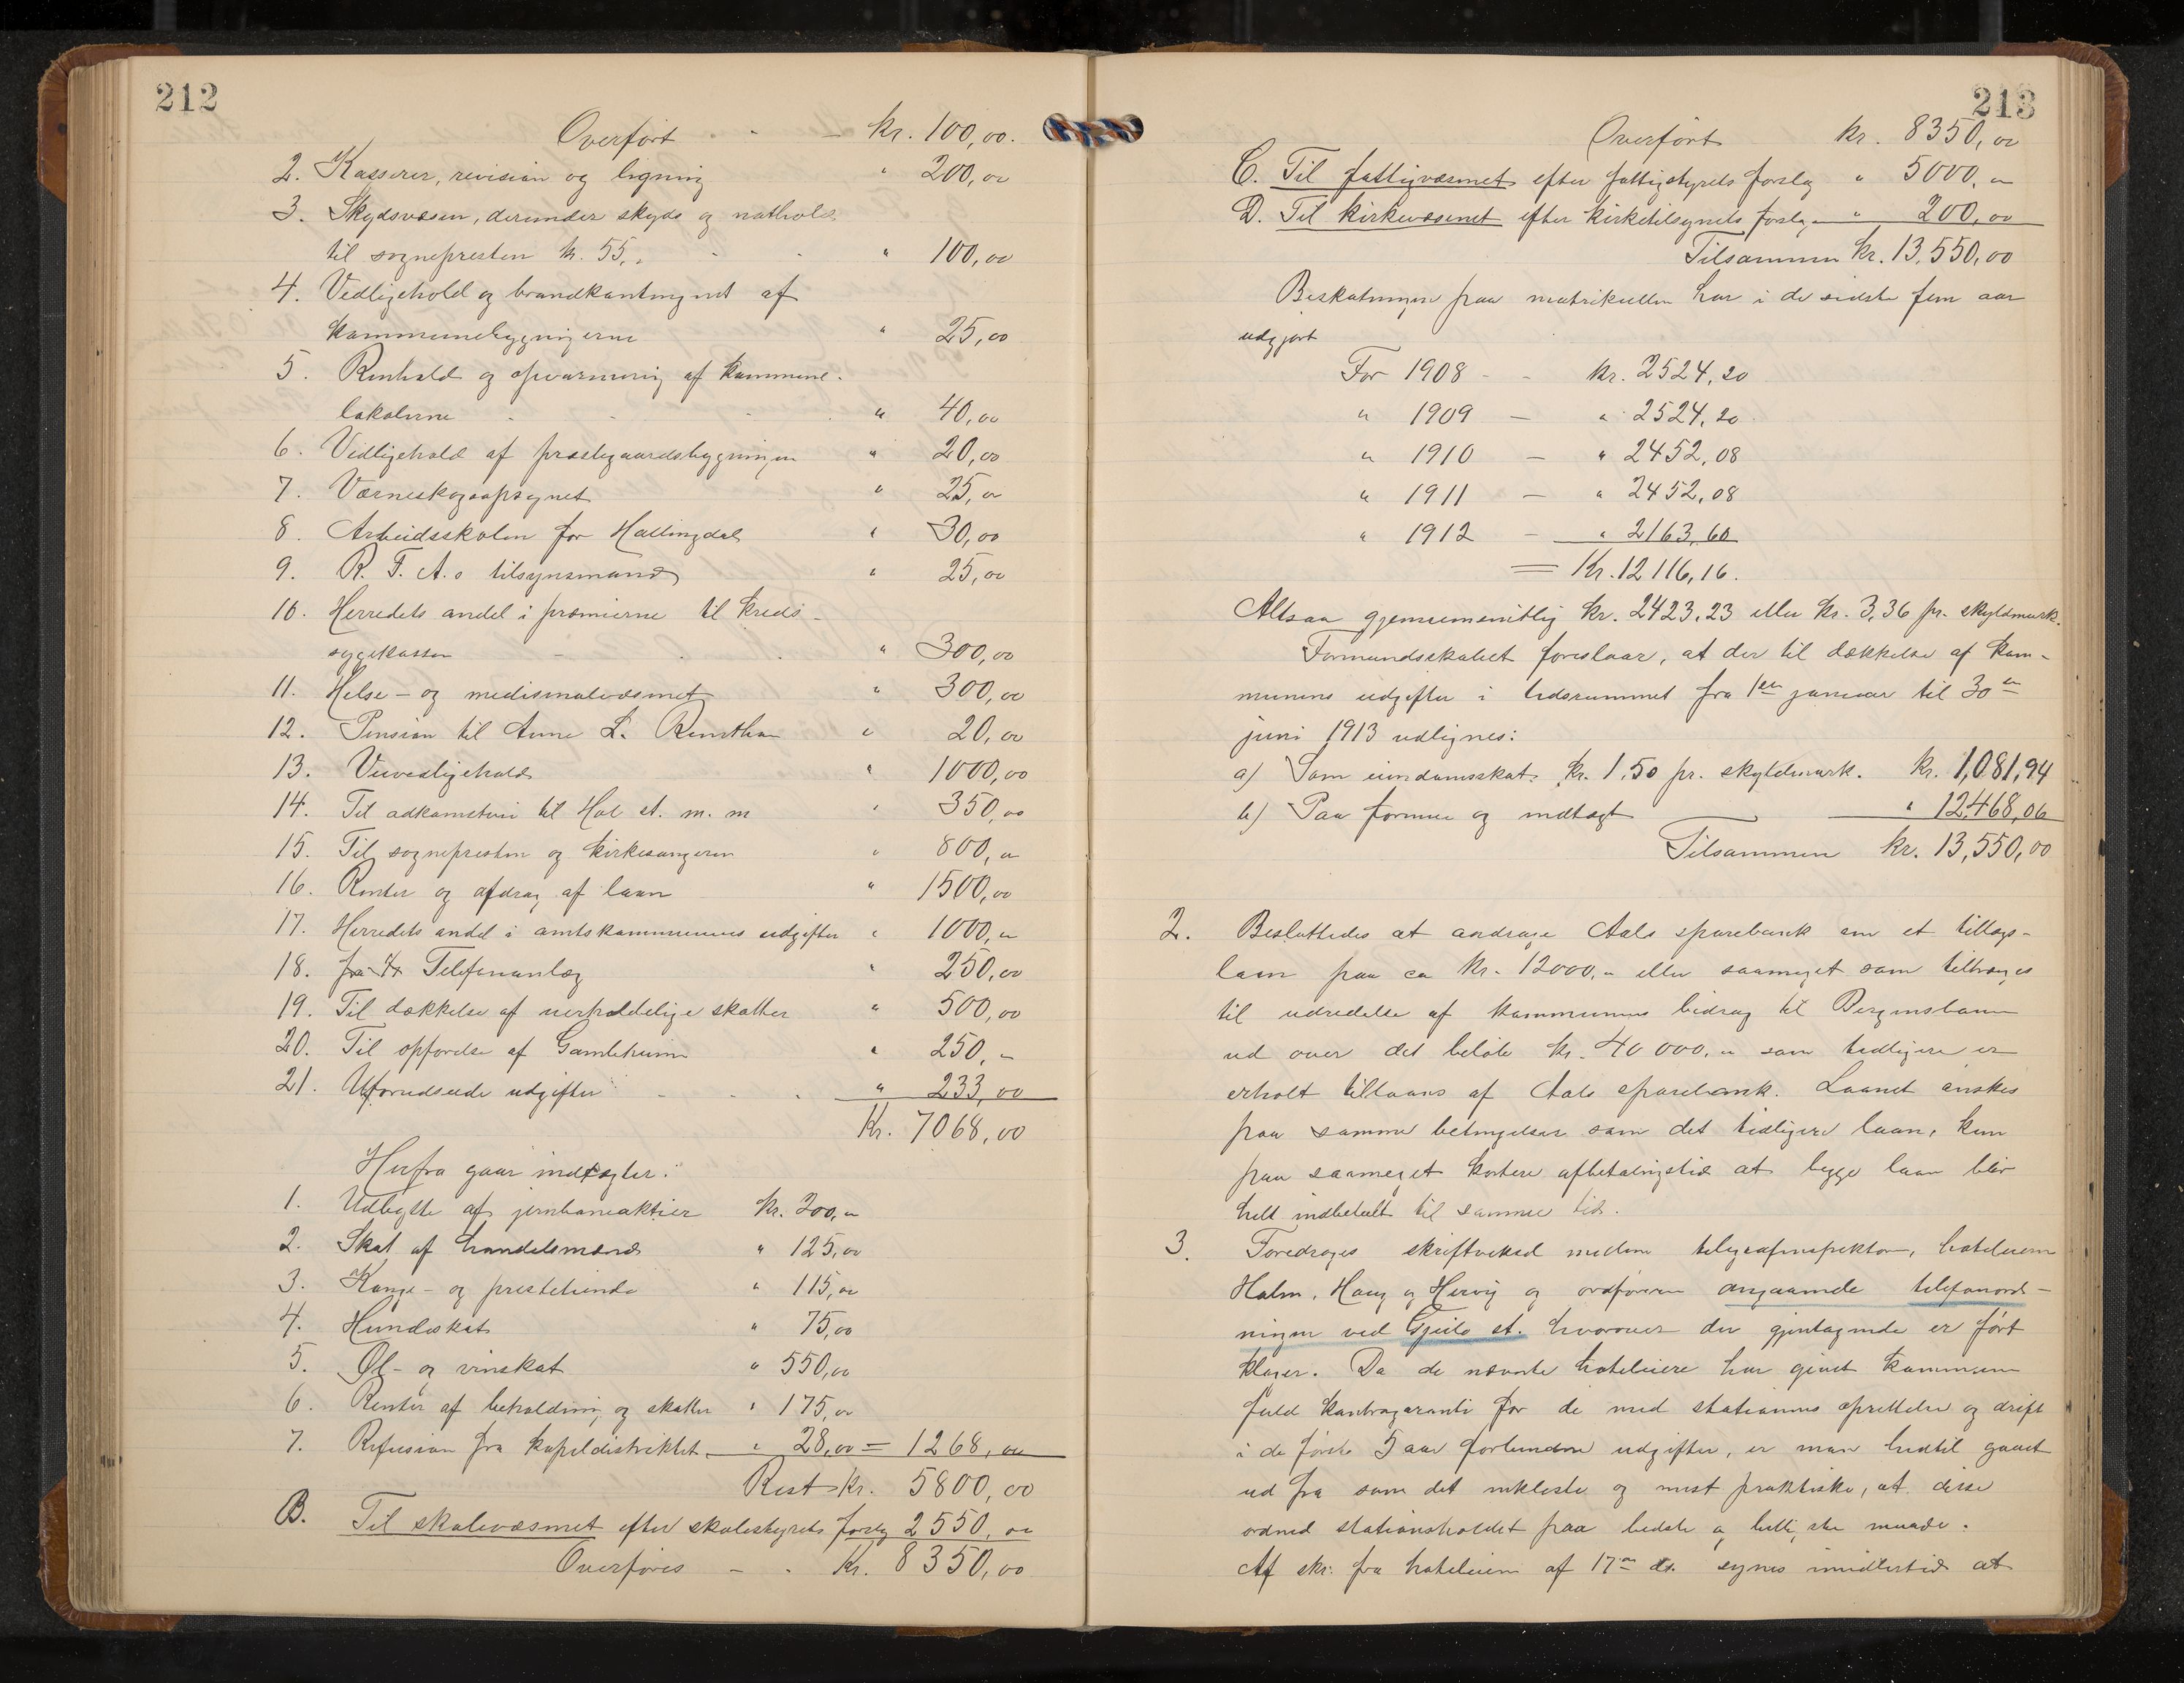 212
Overført - - kr. 100,00.
2. Kasserer, revision og ligning " 200,00
3. Skydsvæsen, derunder skyds og nathold
til sognepresten kr. 55,- " 100,00
4. Vedligehold og brandkontingent af
kommunebygningerne " 25,00
5. Renhold og opvarming af kommune-
lokalerne " 40,00
6. Vedligehold af præstegaardsbygningen " 20,00
7. Værneskogopsynet " 25,00
8. Arbeidsskolen for Hallingdal " 30,00
9. R. F. A.s tilsynsmand " 25,00
10. Herredets andel i præmierne til kreds-
sygekassen " 300,00
11. Helse- og medisinalvæsnet " 300,00
12. Pension til Anne L. " 20,00
13. Veivedligehold " 1000,00
14. Til adkomstvei til Hol st. m. m " 350,00
15. Til sognepresten og kirkesangeren " 800,00
16. Renter og afdrag af laan " 1500,00
17. Herredets andel i amtskommunens udgifter " 1000,00
18. Telefonanlæg " 250,00
19. Til dækkelse af uerholdelige skatter " 500,00
20. Til opførelse af Gamleheim " 250,-
21. Uforudseede udgifter " 233,00
Kr. 7068,00
Herfra gaar indtægter:
1. Udbytte af jernbaneaktier kr. 200,00
2. Skat af handelsmænd " 125,00
3. Konge- og prestetiende " 115,00
4. Hundeskat " 75,00
5. Øl- og vinskat " 550,00
6. Renter af beholdning og skatter " 175,00
7. Refusion fra kapeldistriktet " 28,00 = 1268,00
Rest kr. 5800,00
B. Til skolevæsnet efter skolestyrets forslag 2550,00
Overføres - - Kr. 8350,00
213
Overført kr. 8350,00
C. Til fattigvæsnet efter fattigstyrets forslag " 5000,00
D. Til kirkevæsenet efter kirketilsynets forslag " 200,00
Tilsammen kr. 13,550,00
Beskatningen paa matrikullen har i de sidste fem aar
udgjort
For 1908 - - kr. 2524,20
" 1909 - " 2524,20
" 1910 - " 2452,08
" 1911 - " 2452,08
" 1912 - " 2163,60
= Kr. 12116,16.
Altsaa gjennemsnitlig kr. 2423,23 eller kr. 3,36 pr. skyldmark.
Formandsskabet foreslaar, at der til dækkelse af kom-
munens udgifter i tidsrummet fra 1ste januar til 30te
juni 1913 udlignes:
a) Som eiendomsskat kr. 1,50 pr. skyldmark. kr. 1,081,94
b) Paa formue og indtægt " 12,468,06
Tilsammen kr. 13,550,00
2. Besluttedes at andrage Aals sparebank om et tillægs-
laan paa ca kr. 12000,- eller saameget som tiltrænges
til udredelse af kommunens bidrag til Bergensbanen
ud over det beløb kr. 40 000,- som tidligere er
erholt tillaans af Aals sparebank. Laanet ønskes
paa samme betingelser som det tidligere laan, kun
paa saameget kortere afbetalingstid at begge laan blir
helt indbetalt til samme tid.
3. Foredroges skriftveksel mellem telegrafinspektøren, hoteleierne
Holm, Haug og Hervig og ordføreren angaaende telefonord-
ningen ved Gjeilo st. hvorover der gjentagende er ført
klager. Da de nævnte hoteleiere har givet kommunen
fuld kontragaranti for de med stationens oprettelse og drift
i de første 5 aar forbundne udgifter, er man hidtil gaaet
ud fra som det enkleste og mest praktiske, at disse
ordned stationsholdet paa bedste og billigste maade.
Af skr. fra hoteleierne af 17de ds. synes imidlertid at